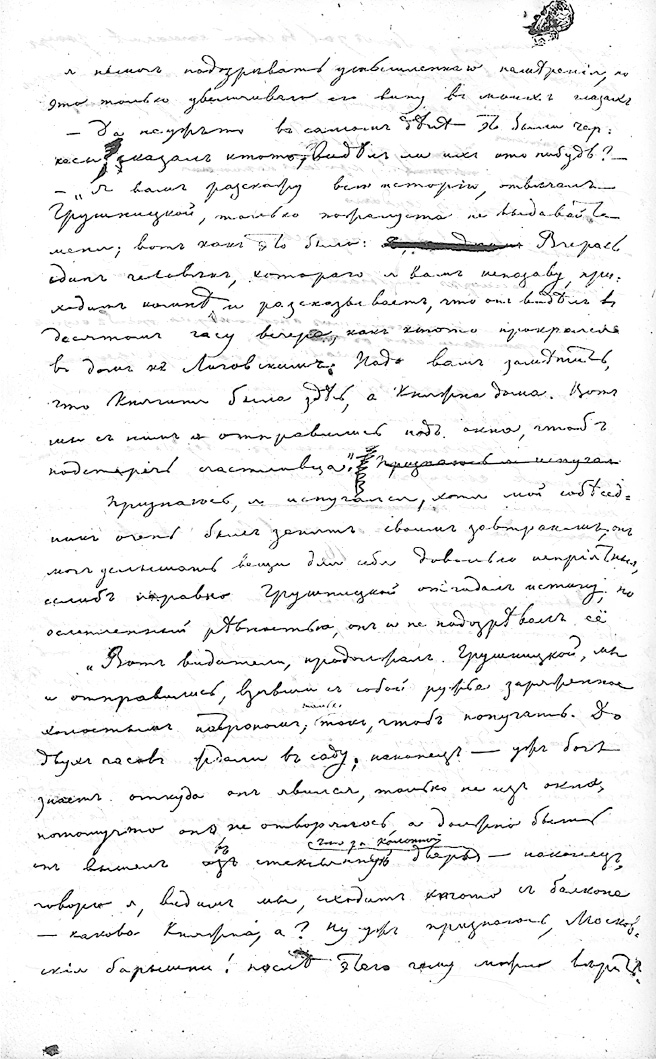 я немогъ подозрѣвать умышленнаго намѣренія, но
это только увеличивало его вину въ моихъ глазахъ
— Да неужъто въ самомъ дѣлѣ это были чер-
кесы, сказалъ ктото, видѣлъ ли ихъ кто нибудь? —
— „Я вамъ разскажу всю исторію, отвѣчалъ
Грушницкой, только пожалуста не выдавайте
меня; вотъ какъ это было: Вчерась
одинъ человѣкъ, котораго я вамъ неназову, при-
ходитъ комнѣ и разсказываетъ, что онъ видѣлъ въ
десятомъ часу вечера, какъ ктото прокрался
въ домъ къ Лиговскимъ. Надо вамъ замѣтить,
что Княгиня была здѣсь, а Княжна дома. Вотъ
мы съ нимъ и отправились подъ окна, чтобъ
подстеречь счастливца". Признаюсь я испугал
Признаюсь, я испугался, хотя мой собѣсед-
никъ очень былъ занятъ своимъ завтракомъ, онъ
могъ услышать вещи для себя довольно непріятныя,
еслибъ неравно Грушницкой отгадалъ истину; но
ослепленный рѣвностью, онъ и не подозрѣвалъ её
„Вотъ видители, продолжалъ Грушницкой, мы
и отправились, взявши съ собой ружье заряженное
холостымъ патрономъ, только такъ, чтобъ попугать. До
двухъ часовъ ждали въ саду, наконецъ — ужъ богъ
знаетъ откуда онъ явился, только не изъ окна,
потомучто оно не отворялось, а должно быть
онъ вышелъ въ стеклянную дверь что за колонной — наконецъ,
говорю я, видимъ мы, сходитъ ктото съ балкона
— какова Княжна, а? Ну ужъ признаюсь, Москов-
скія барышни! послѣ этого чему можно вѣрить.